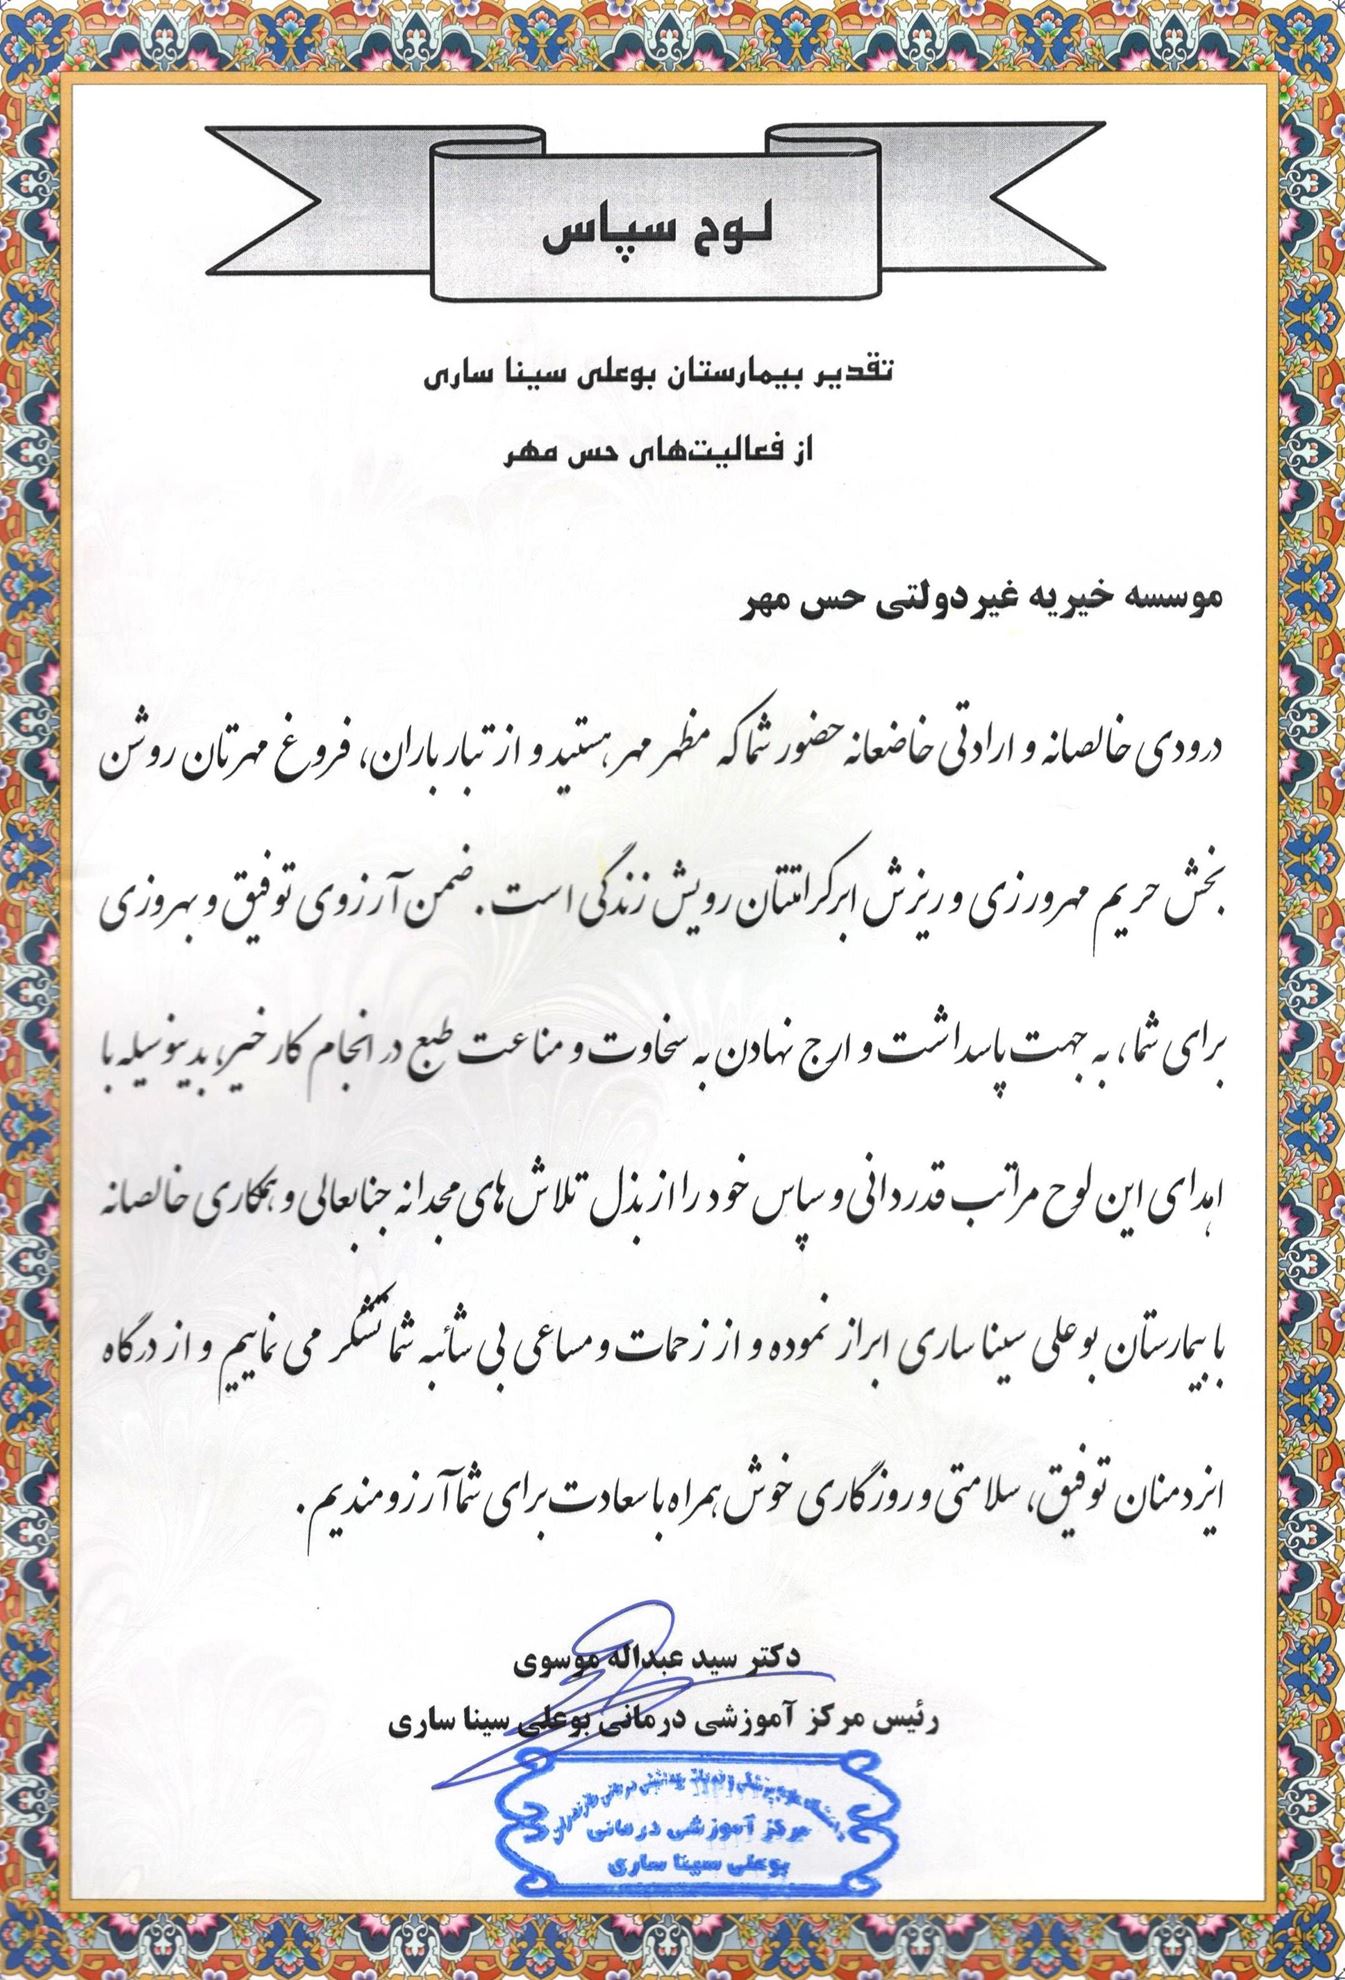 لوح سپاس
تقدیر بیمارستان بوعلی سینا ساری
از فعالیت‌های حس مهر
موسسه خیریه غیردولتی حس مهر
درودی خالصانه و ارادتی خاضعانه حضور شما که مظهر مهر هستید و از تبار باران، فروغ مهرتان روشن
بخش حریم مهرورزی و ریزش ابر کرامتتان رویش زندگی است. ضمن آرزوی توفیق و بهروزی
برای شما، به جهت پاسداشت و ارج نهادن به سخاوت و مناعت طبع در انجام کار خیر، بدینوسیله با
اهدای این لوح مراتب قدردانی و سپاس خود را از بذل تلاش های مجدانه جنابعالی و همکاری خالصانه
با بیمارستان بوعلی سینا ساری ابراز نموده و از زحمات و مساعی بی شائبه شما تشکر می نماییم و از درگاه
ایزدمنان توفیق، سلامتی و روزگاری خوش همراه با سعادت برای شما آرزومندیم.
دکتر سید عبداله موسوی
رئیس مرکز آموزشی درمانی بوعلی سینا ساری
دانشگاه علوم پزشکی و خدمات بهداشتی درمانی مازندران
مرکز آموزشی درمانی
بوعلی سینا ساری